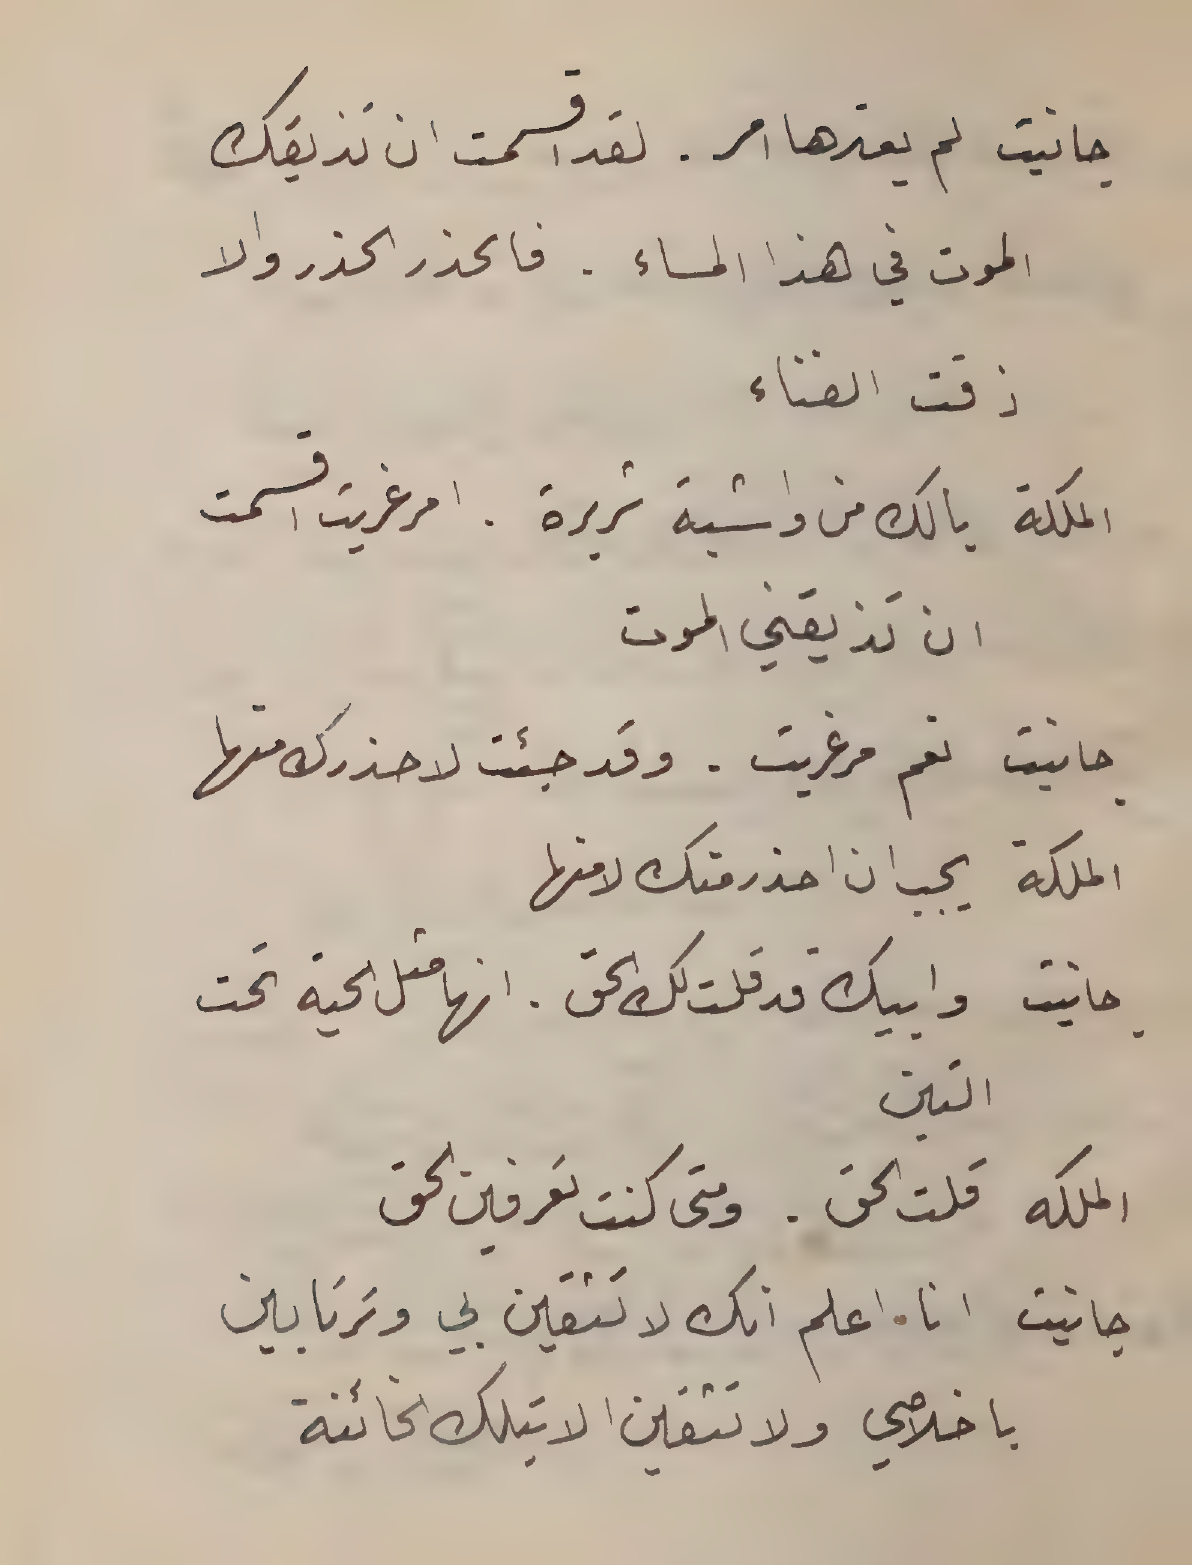 جانيت لم يعترها امر . لقد اقسمت ان تذيقك
الموت في هذا المساء . فالحذر الحذر والا
ذقت الفناء
الملكة يالك من واشية شريرة . امرغريت اقسمت
ان تذيقني الموت
جانيت نعم مرغريت . وقد جئت لاحذرك منها
الملكة يجب ان احذر منك لا منها
جانيت وابيك قد قلت لك الحق . انها مثل الحية تحت
التبن
الملكه قلت الحق . ومتى كنت تعرفين الحق
جانيت انا . اعلم أنك لا تثقين بي وترتابين
باخلاصي ولا تثقين الا بتلك الخائنة